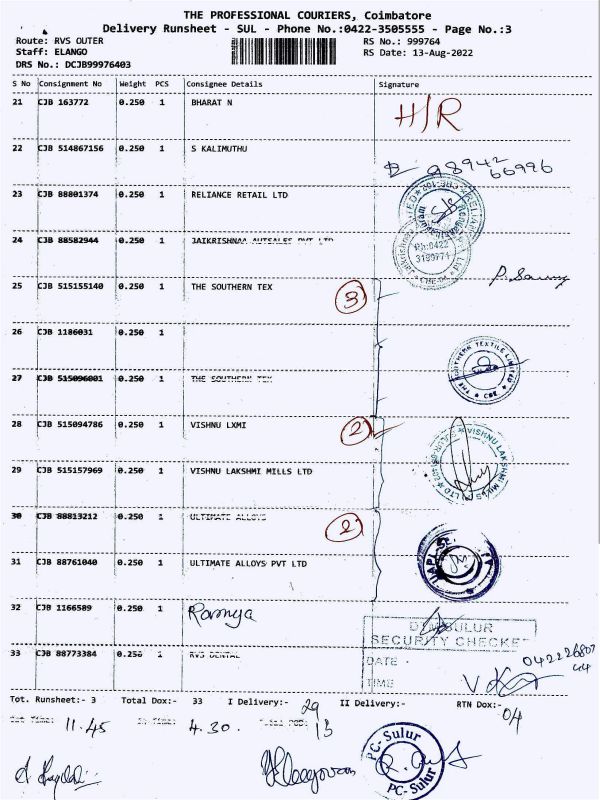 THE PROFESSIONAL COURIERS, Coimbatore
Delivery Runsheet - SUL - Phone No.:0422-3505555 - Page No.:3
Route: RVS OUTER
RS No.: 999764
Staff: ELANGO
RS Date: 13-Aug-2022
DRS No.: DCJB99976403
S No Consignment No Weight PCS Consignee Details Signature
21 CJB 163772 0.250 1 BHARAT N H/R
22 CJB 514867156 0.250 1 S KALIMUTHU
98942
66996
23 CJB 88801374 0.250 1 RELIANCE RETAIL LTD
24 CJB 88582944 0.250 1 JAIKRISHNAA AUTSALES PVT LTD
Ph:0422
25 CJB 515155140 0.250 1 THE SOUTHERN TEX 3
26 CJB 1186031 0.250 1
THE SOUTHERN TEXTILE LIMITED CBE
27 CJB 515096001 0.250 1 THE SOUTHERN TEX
28 CJB 515094786 0.250 1 VISHNU LXMI 2
VISHNU LAKSHMI MILLS
29 CJB 515157969 0.250 1 VISHNU LAKSHMI MILLS LTD
30 CJB 88813212 0.250 1 ULTIMATE ALLOYS 2
31 CJB 88761040 0.250 1 ULTIMATE ALLOYS PVT LTD
UAPL
32 CJB 1166589 0.250 1 Ramya
SULUR
SECURITY CHECKED
33 CJB 88773384 0.250 1 RVS DENTAL
DATE
TIME
Tot. Runsheet:- 3 Total Dox:- 33 I Delivery:- 29 II Delivery:- RTN Dox:- 04
11.45 4.30. 13
PC-Sulur
PC-Sulur